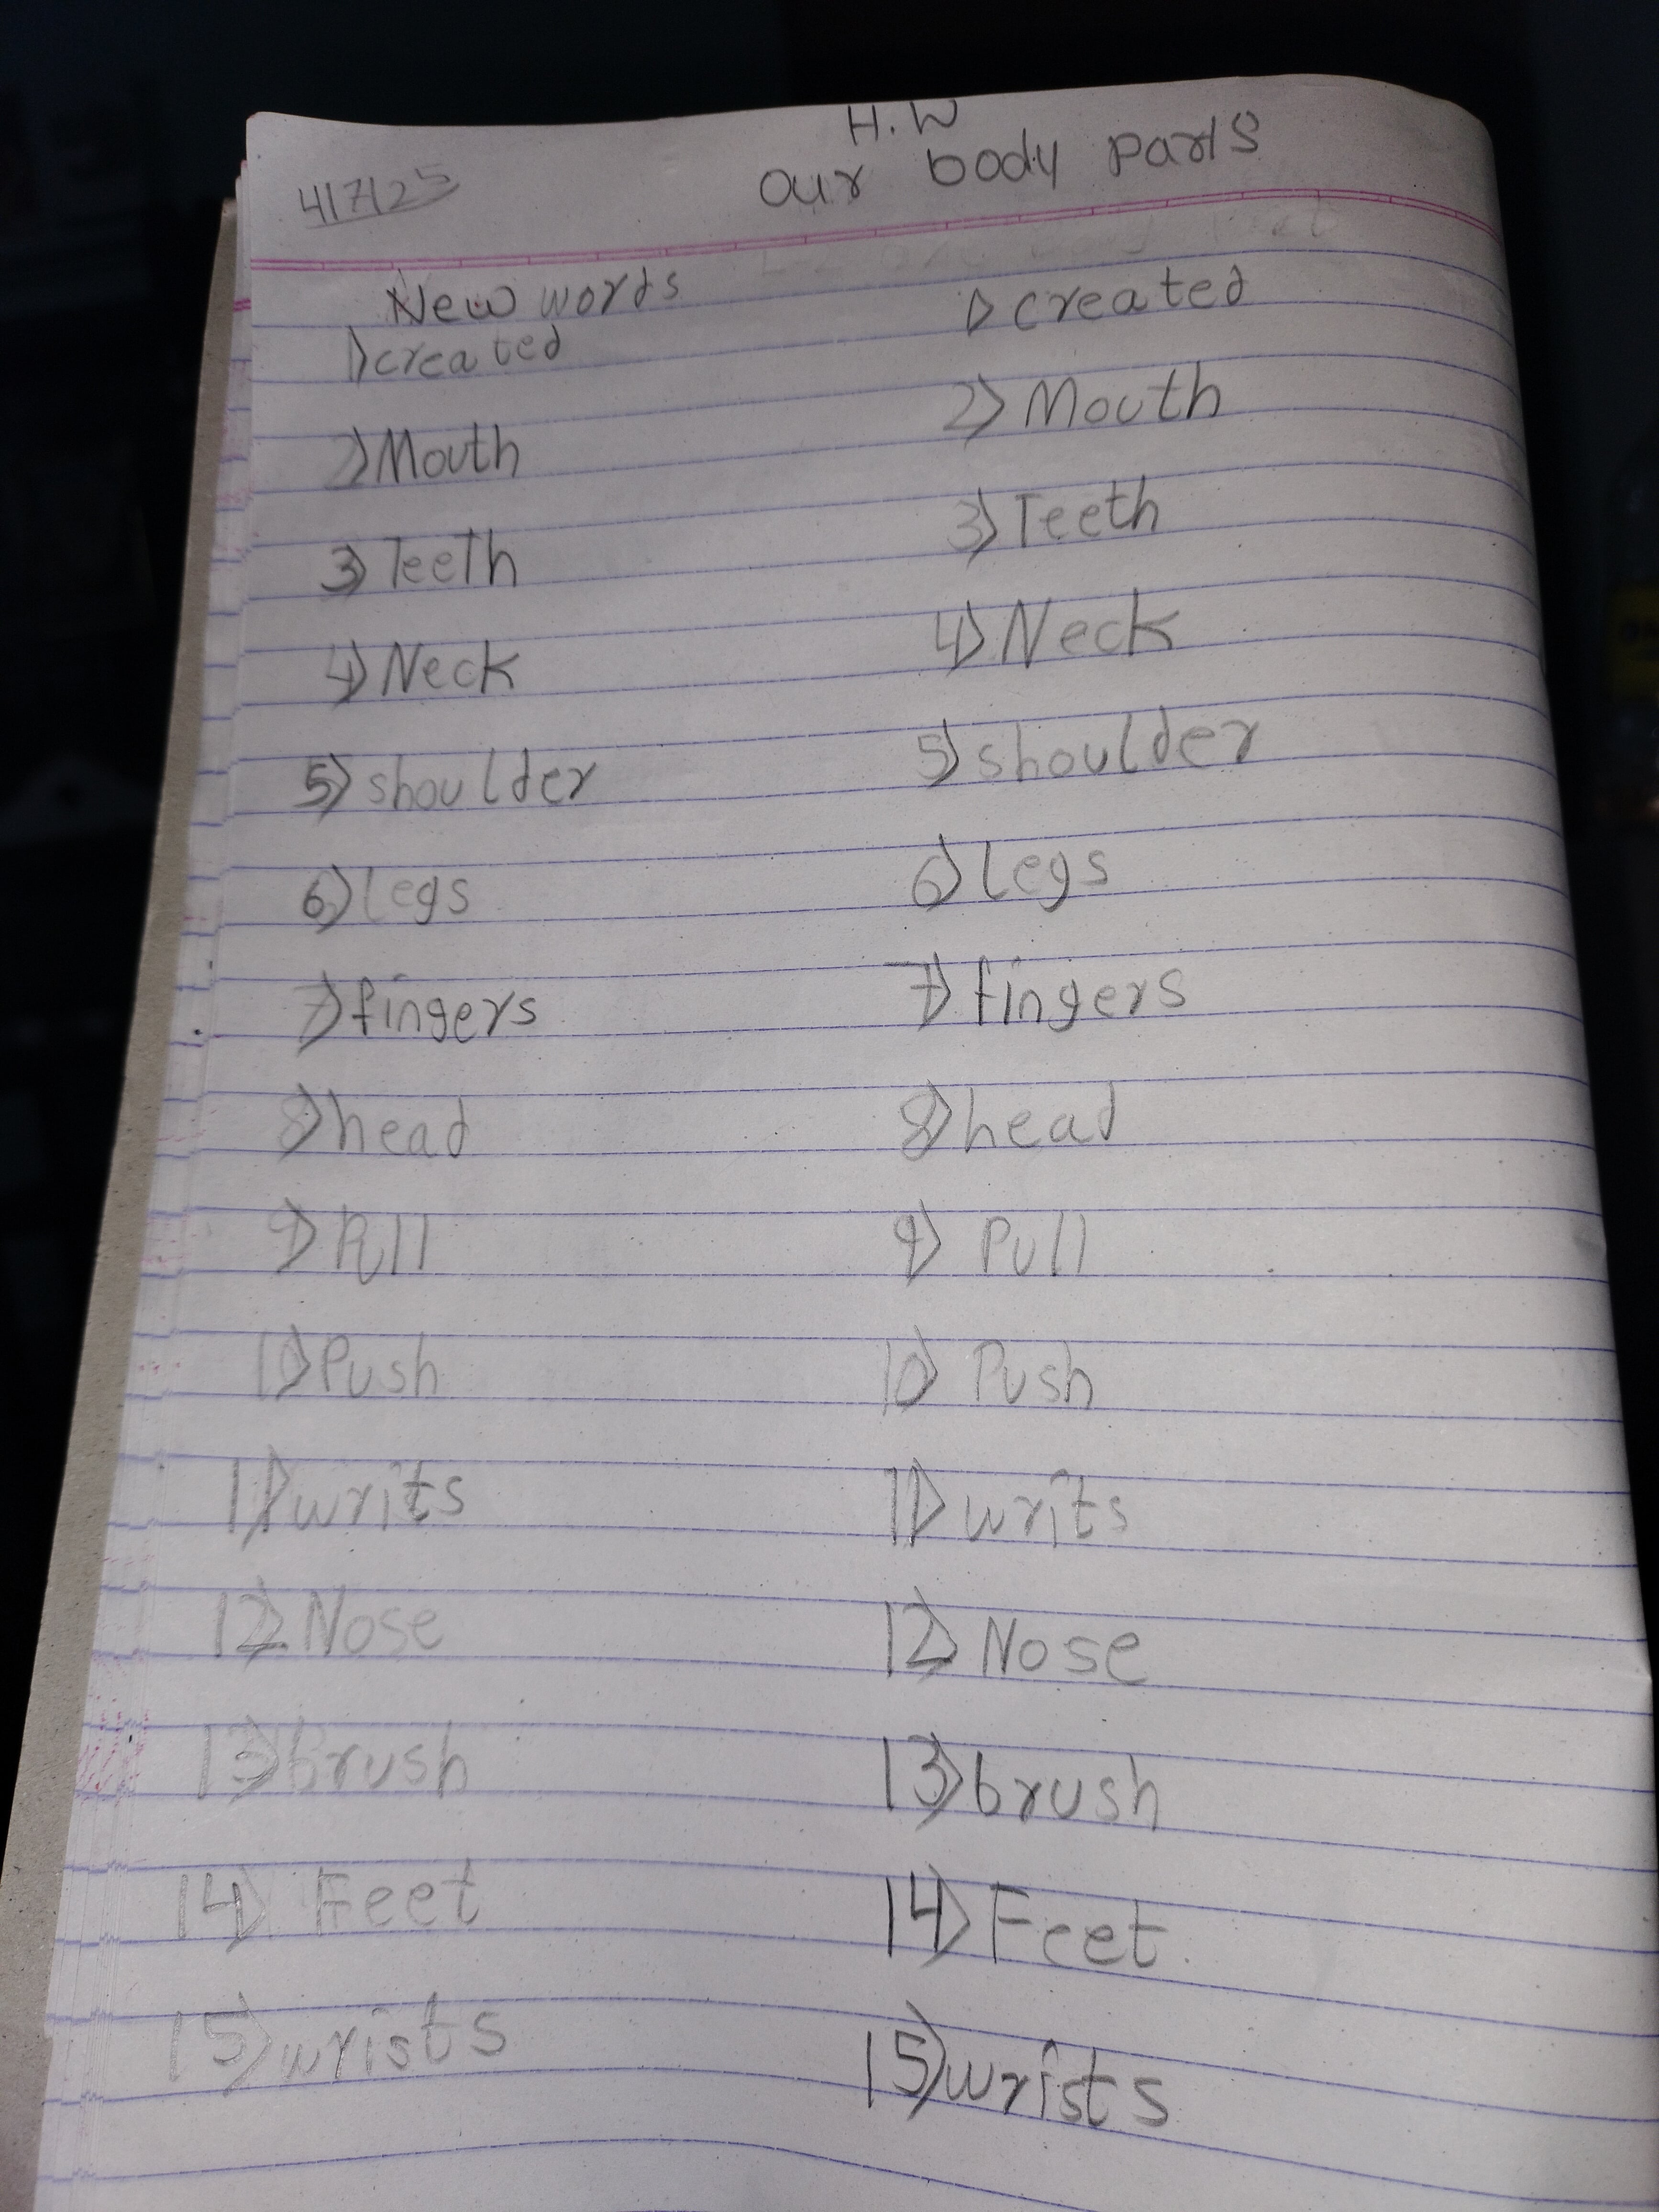 H.W
4/7/25 our body parts
New words 1) created
1) created
2) Mouth
2) Mouth
3) Teeth
3) Teeth
4) Neck
4) Neck
5) shoulder
5) shoulder
6) legs
6) legs
7) fingers
7) fingers
8) head
8) head
9) Pull
9) Pull
10) Push
10) Push
11) writs
11) writs
12) Nose
12) Nose
13) brush
13) brush
14) Feet
14) Feet
15) wrists
15) wrists